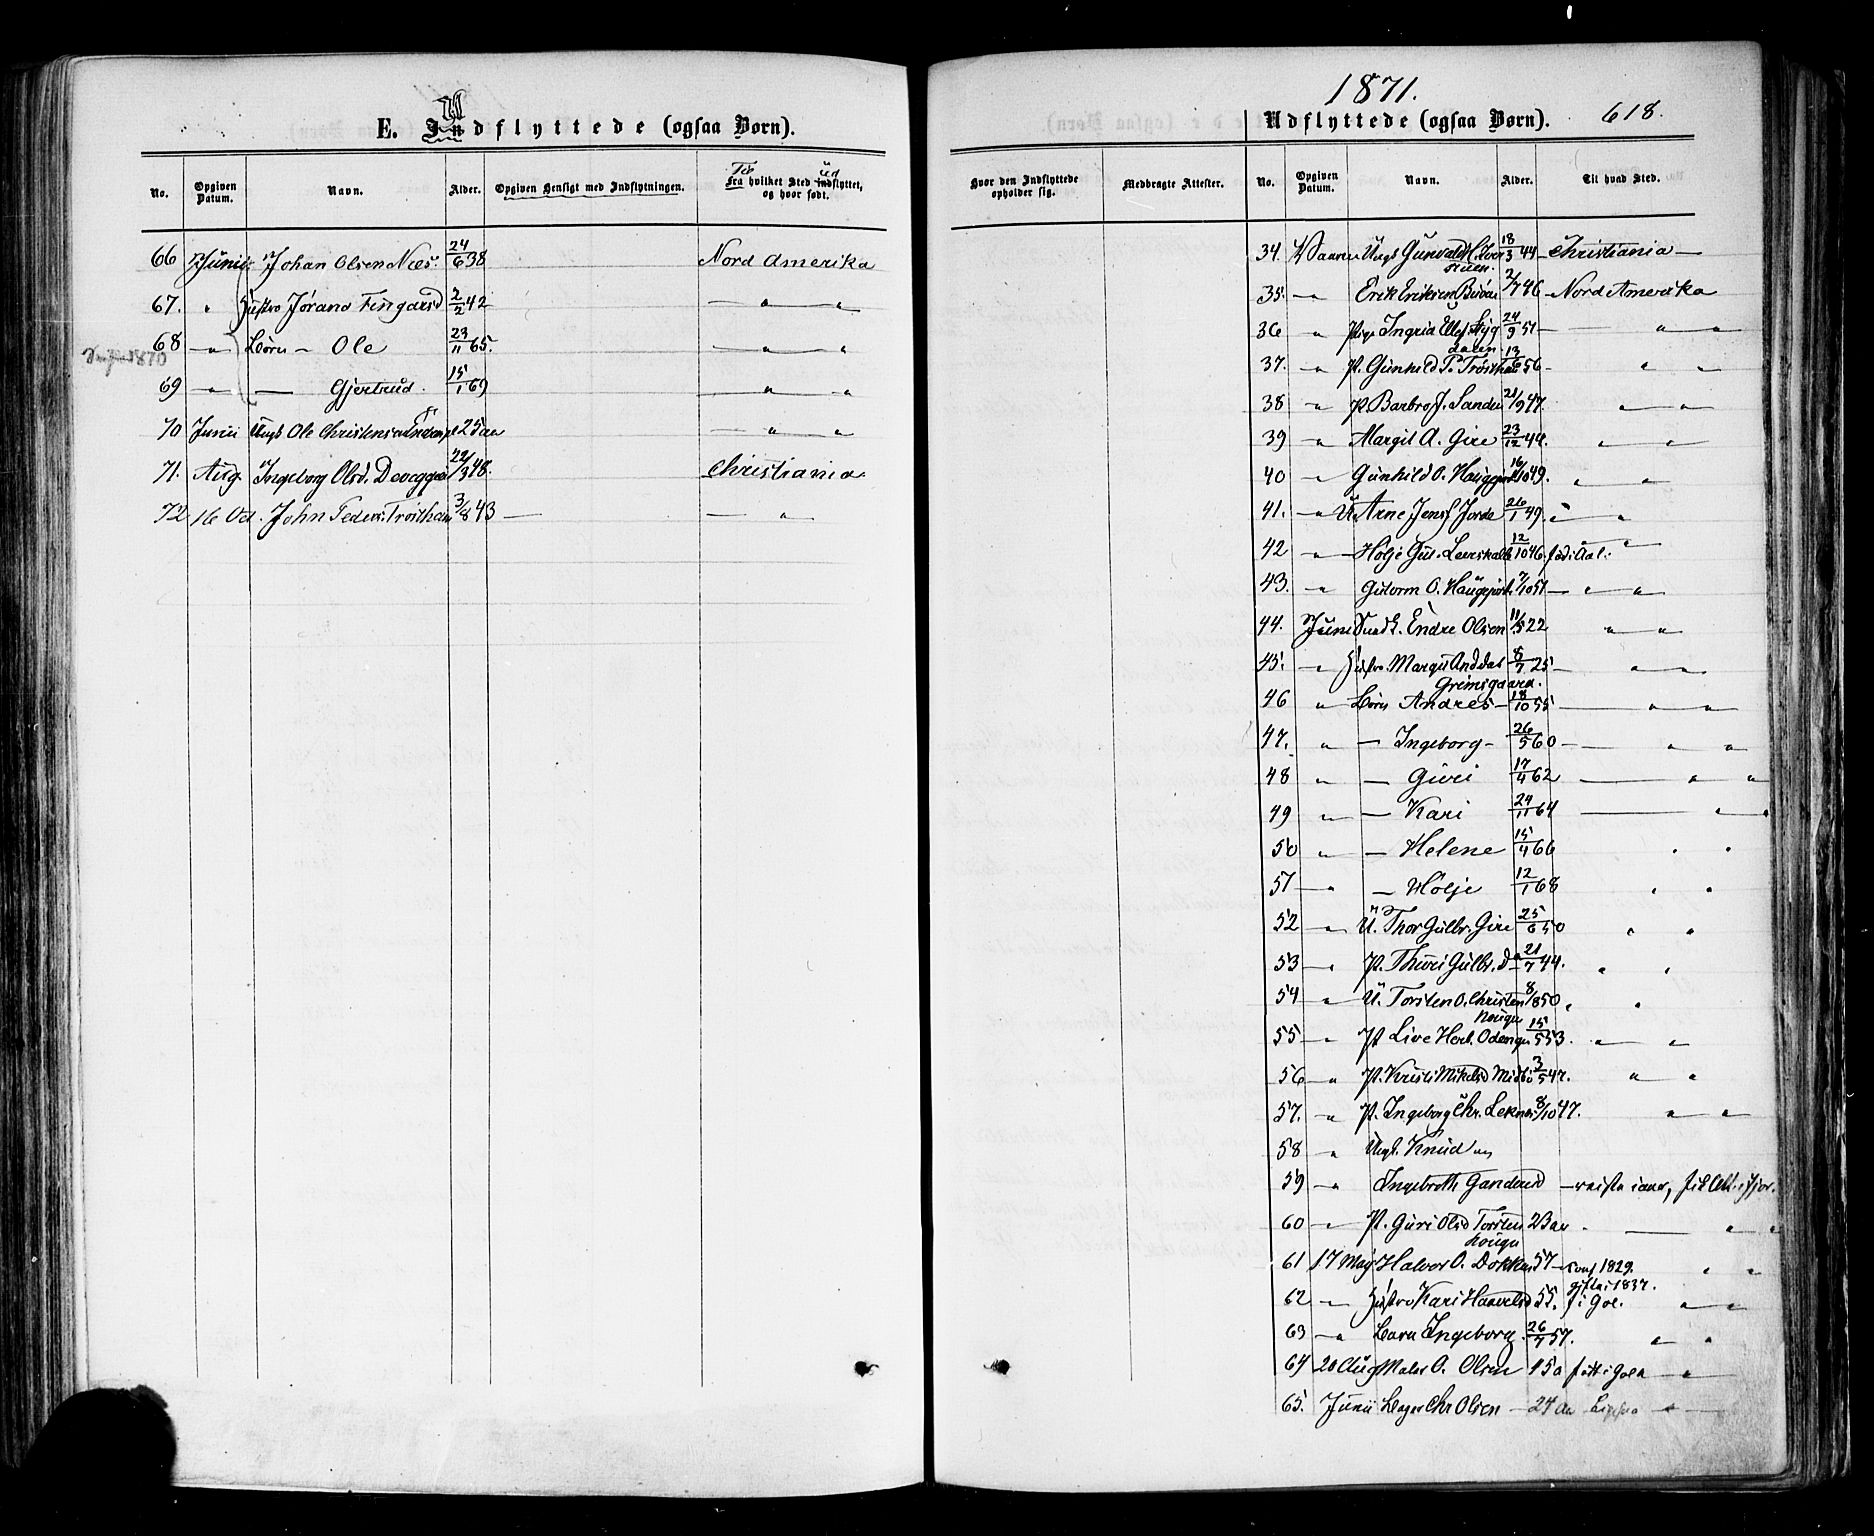 E. Indflyttede (ogsaa Børn).
Ud
No. Opgiven Datum. Navn. Alder. Opgiven Hensigt med Indflytningen. Fra hvilket Sted indflyttet, og hvor født.
Til ud
66 Junii Johan Olsen Næs. 24/6 38 Nord Amerika
67. " Hustro Jørand Fingarsd 2/2 42 — " "
68 " Børn — Ole 23/11 65. — " "
1870
69 " — Gjertrud. 15/1 69 " "
70 Junii Ungk Ole Christens 25 aar — " "
71. Aug Ingeborg Olsd. 22/3 48. Christiania
72 16 Oct. John Peders. Trøsthem 3/8 43 — — "
1871.
Udflyttede (ogsaa Børn). 618.
Hvor den Indflyttede opholder sig. Medbragte Attester. No. Opgiven Datum. Navn. Alder. Til hvad Sted.
34. Vaaren Ungk Gunvald 18/3 44 — Christiania —
35. — " Erik Eriksen 2/7 46 — Nord Amerika
36 " Pige Ingrid 24/9 51 — " "
37. — " P. Gunhild P. Trøsthem 13/6 56 — " "
38 — " P. Barbro J. Sander 21/9 47. " "
39 — " Margit A. Gire 23/12 44. " "
40 — " Gunhild O. 16/10 49. " "
41. — " U. Arne Jens. Jorde 26/1 49. " "
42 — " Holje Gul. 12/10 46. fød i Aal.
43. — " Gutorm O. 7/10 51 — " "
44. Juni Endre Olsen 11/5 22 " "
45. — " Hustro. Margit And.dat 8/7 25 — " "
Grimsgaard.
46 " Børn Andres — 18/10 55 — " "
47. " — Ingeborg — 26/5 60 — " "
48 " — Guri 17/4 62 — " "
49 " — Kari 24/11 64 — " "
50 " — Helene 15/4 66 " "
51 — " — Holje 12/1 68 " "
52 — " U. Thor Gulbr. Gire 25/6 50 " "
53 — " P. Thuri Gulbr. D 21/7 44. " "
54 — " U. Torsten O. Christen 8/8 50 " "
hougen
55 — " P. Live Herl. Odengen 15/5 53. " "
56 — " P. Kristi Mikelsd Midbø 3/5 47. " "
57. — " P. Ingeborg Chr. 8/10 47. " "
58 — " Ungk. Knud
59 — " Ingebreth Ganderud — reiste i aar, fik Att. i Fjor.
60 — " P. Guri Olsd Torsten 23 aar — " "
hougen
61 17 Maj Halvor O. Dokken 57 — conf 1829. " "
gift i 1837.
62 — " Hustro Kari Haavelsd 55. f i Gol. " "
63 — " Barn Ingeborg. 26/7 57. " "
64 20 Aug Maler O. Olsen 150 født i Gol " "
65. Junii Chr Olsen — 24 Aar " —